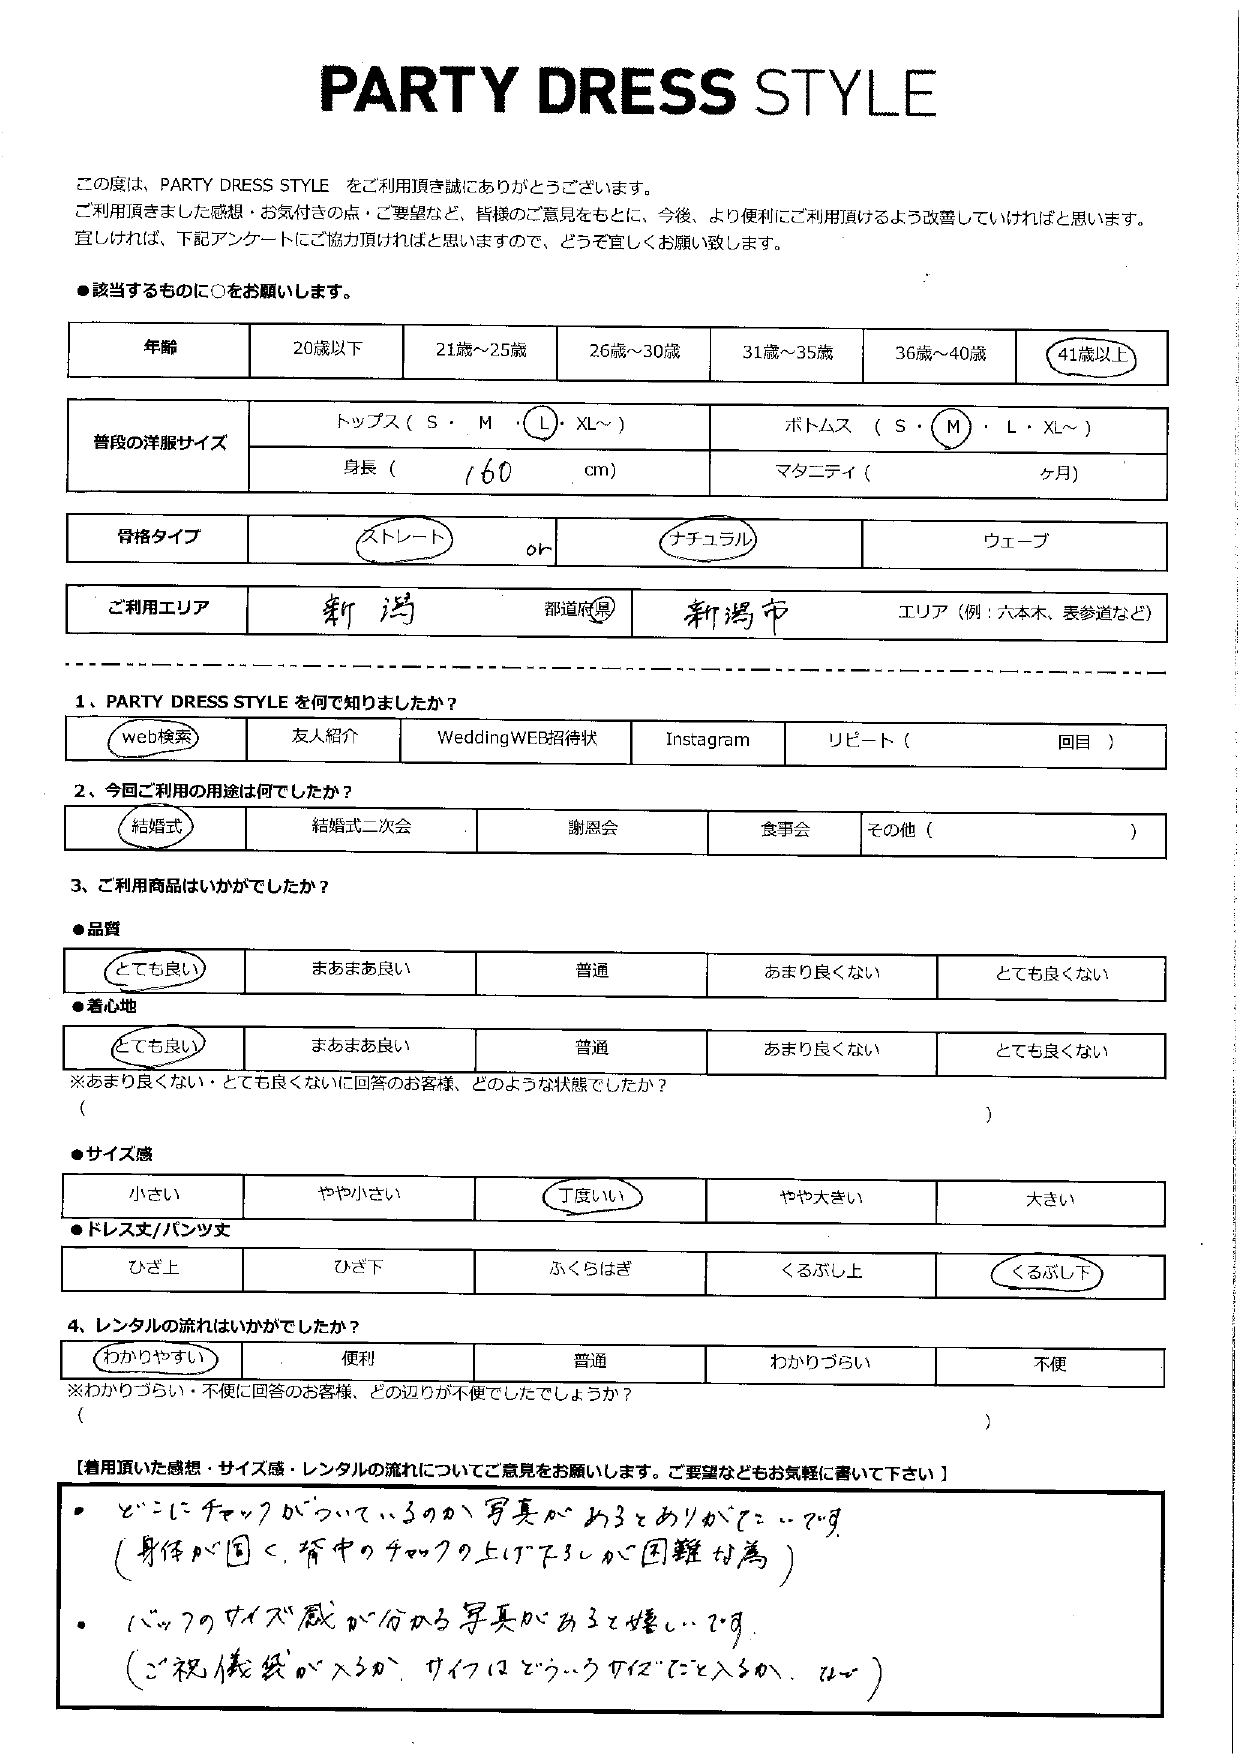 PARTY DRESS STYLE
この度は、PARTY DRESS STYLE をご利用頂き誠にありがとうございます。
ご利用頂きました感想・お気付きの点・ご要望など、皆様のご意見をもとに、今後、より便利にご利用頂けるよう改善していければと思います。
宜しければ、下記アンケートにご協力頂ければと思いますので、どうぞ宜しくお願い致します。
●該当するものに○をお願いします。
年齢 20歳以下 21歳～25歳 26歳～30歳 31歳～35歳 36歳～40歳 41歳以上
普段の洋服サイズ
トップス ( S ・ M ・ L ・ XL～ ) ボトムス ( S ・ M ・ L ・ XL～ )
身長 ( 160 cm) マタニティ ( ヶ月)
骨格タイプ ストレート or ナチュラル ウェーブ
ご利用エリア 新潟 都道府県 新潟市 エリア（例：六本木、表参道など）
1、PARTY DRESS STYLE を何で知りましたか？
web検索 友人紹介 WeddingWEB招待状 Instagram リピート ( 回目 )
2、今回ご利用の用途は何でしたか？
結婚式 結婚式二次会 謝恩会 食事会 その他 ( )
3、ご利用商品はいかがでしたか？
●品質
とても良い まあまあ良い 普通 あまり良くない とても良くない
●着心地
とても良い まあまあ良い 普通 あまり良くない とても良くない
※あまり良くない・とても良くないに回答のお客様、どのような状態でしたか？
( )
●サイズ感
小さい やや小さい 丁度いい やや大きい 大きい
●ドレス丈/パンツ丈
ひざ上 ひざ下 ふくらはぎ くるぶし上 くるぶし下
4、レンタルの流れはいかがでしたか？
わかりやすい 便利 普通 わかりづらい 不便
※わかりづらい・不便に回答のお客様、どの辺りが不便でしたでしょうか？
( )
【着用頂いた感想・サイズ感・レンタルの流れについてご意見をお願いします。ご要望などもお気軽に書いて下さい 】
・ どこにチャックがついているのか写真があるとありがたいです
(身体が固く、背中のチャックの上げ下ろしが困難な為)
・ バックのサイズ感が分かる写真があると嬉しいです。
(ご祝儀袋が入るか、サイフはどういうサイズだと入るか、など)